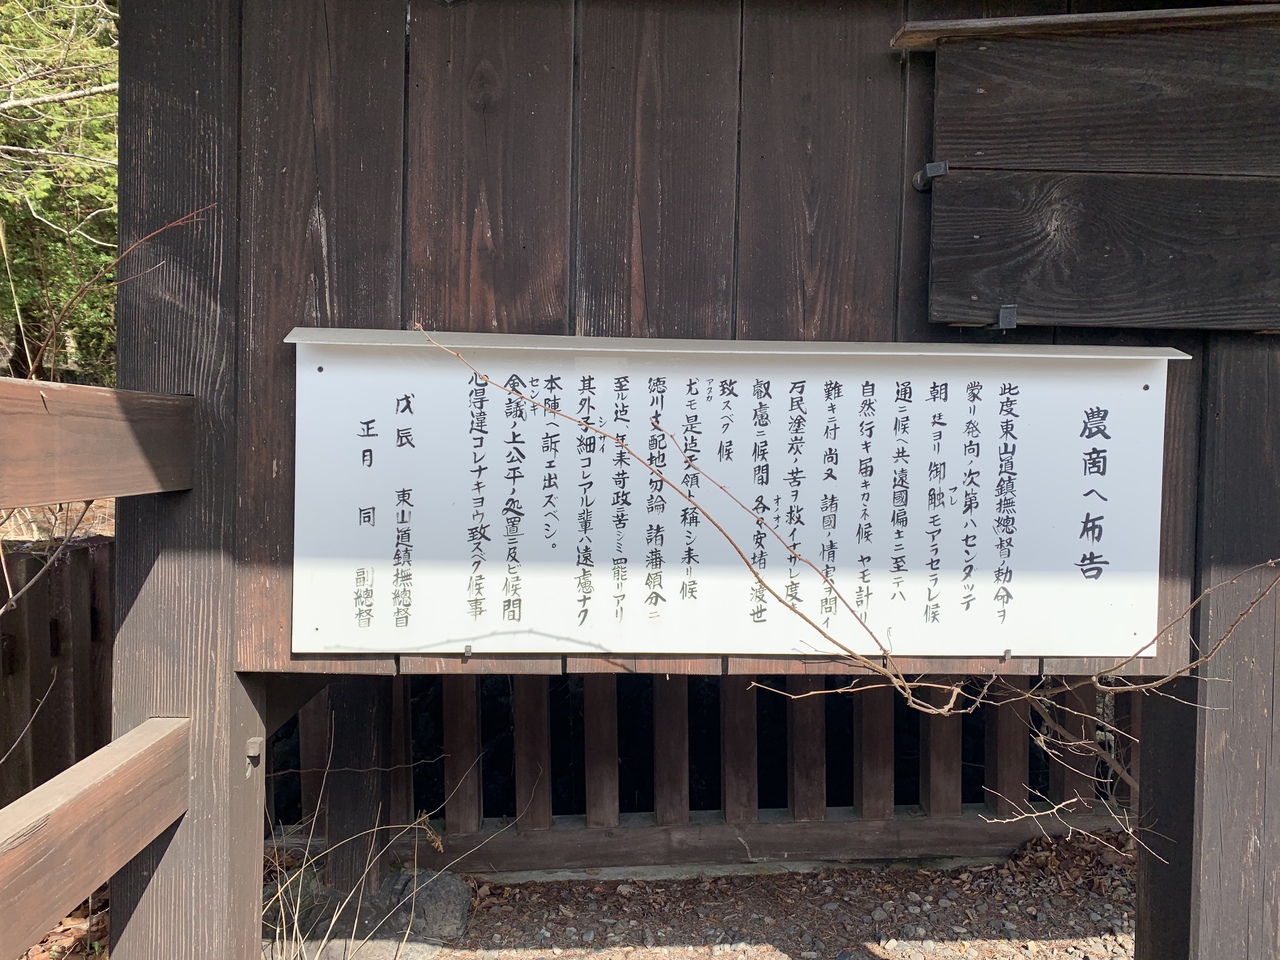 農商ヘ布告
此度東山道鎮撫總督ノ勅命ヲ
蒙リ発向ノ次第ハセンタッテ
朝廷ヨリ御触モアラセラレ候
フレ
通ニ候ヘ共遠國偏土ニ至テハ
自然行キ届キカネ候ヤモ計リ
難キニ付尚又諸國ノ情実ヲ問イ
万民塗炭ノ苦ヲ救イナサレ度キ
叡慮ニ候間各々安堵ノ渡世
オノオノ
致スベク候
尤モ是迠天領ト稱シ来リ候
アスカ
徳川支配地勿論諸藩領分ニ
至ル迠年来苛政ニ苦シミ罷リアリ
其外子細コレアル輩ハ遠慮ナク
シサイ
本陣ヘ訴エ出ズベシ。
センギ
僉議ノ上公平ノ処置ニ及ビ候間
心得違コレナキヨウ致スベク候事
戊辰 東山道鎮撫總督
正月 同 副總督